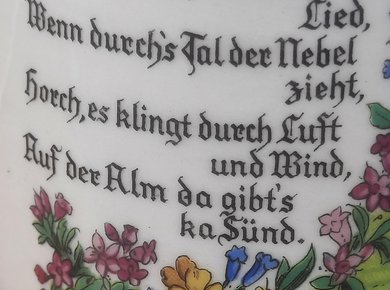 Lied,
Wenn durch's Tal der Nebel
zieht,
Horch, es klingt durch Luft
und Wind,
Auf der Alm da gibt's
ka Sünd.